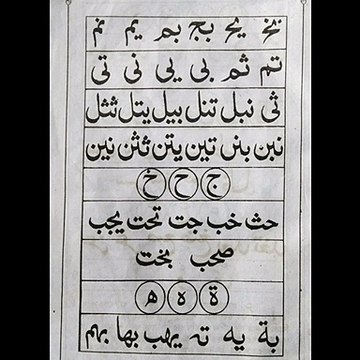 نخ یح بج بم یم نم
تم ثم بی یی نی تی
ثی نبل تنل بیل یتل نثل
نبن بنن تین یتن نثن نین
ج ح خ
حث خب جت تحت یجب
صحب بخت
ة ه ھ
بة یه تہ یهب بها بهم